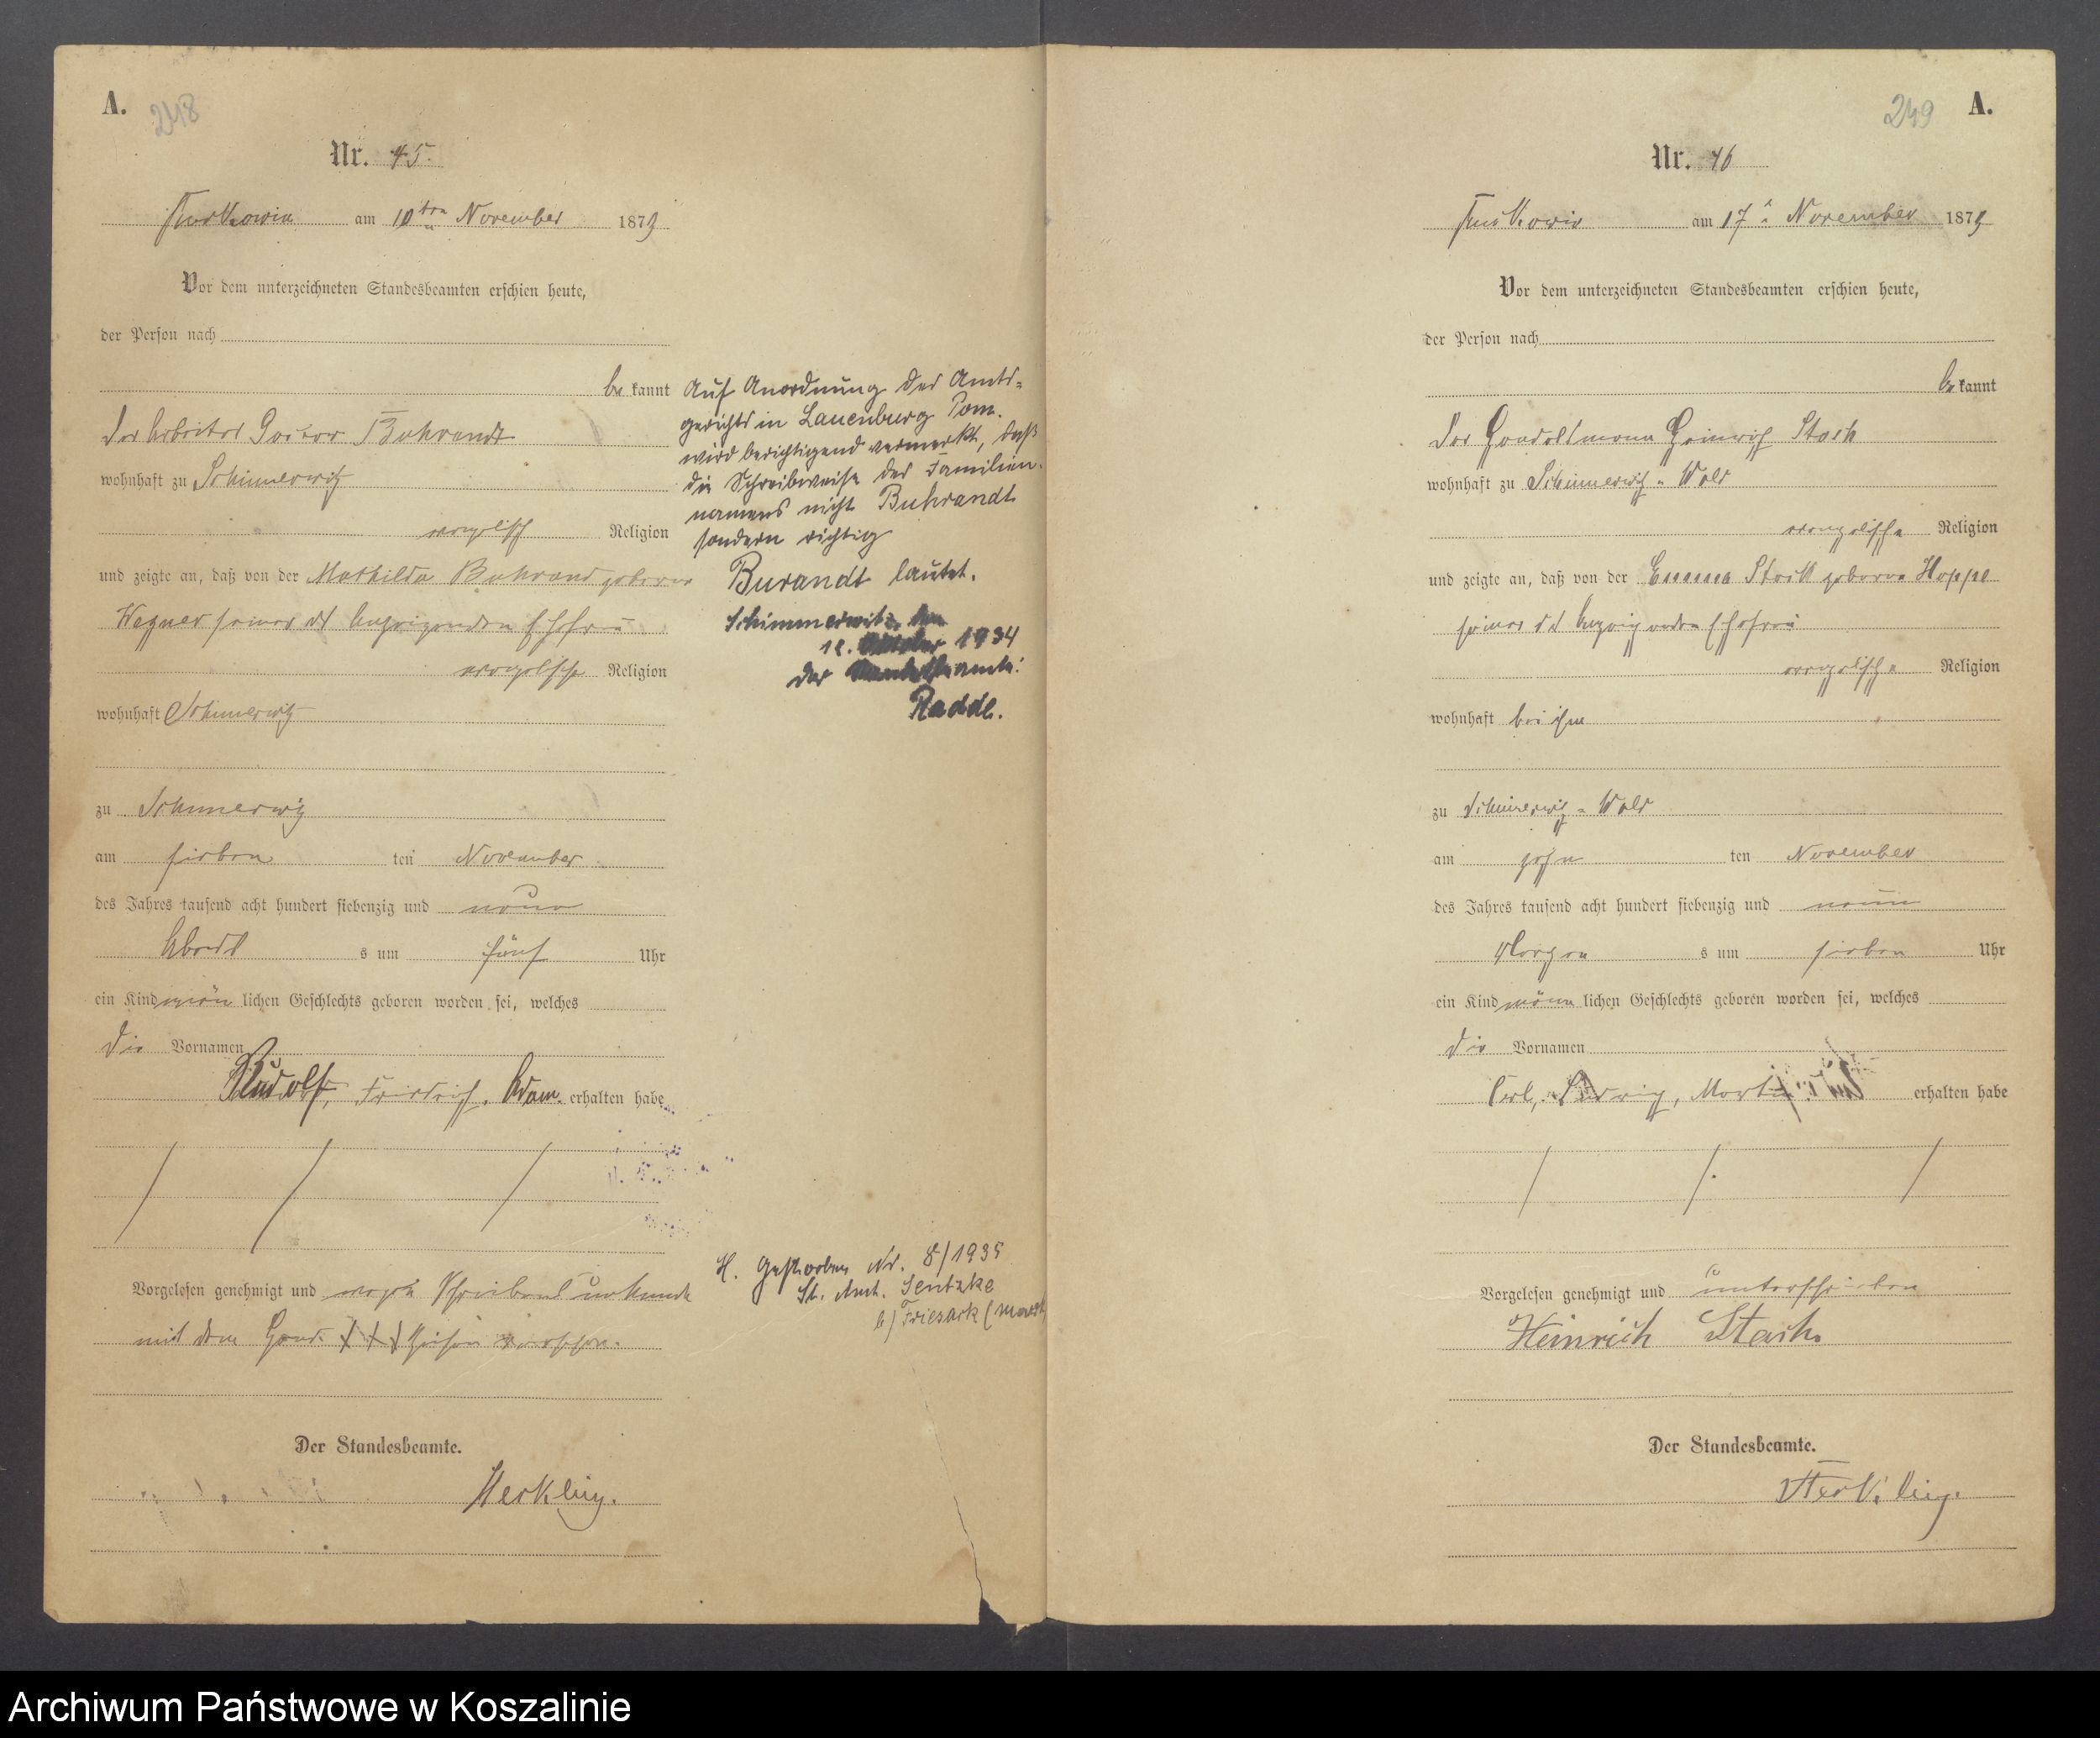 A.
248
Nr. 45.
am 10ten November 1879
Vor dem unterzeichneten Standesbeamten erschien heute,
der Person nach
be kannt
der Arbeiter Buhrandt
wohnhaft zu Schimmerwitz
evangelisch Religion
und zeigte an, daß von der Mathilde Buhrand geborne
Wegner seiner Ehefrau
evangelische Religion
wohnhaft Schimmerwitz
zu Schimmerwitz
am sieben ten November
des Jahres tausend acht hundert siebenzig und neun
Abend s um fünf Uhr
ein Kind män lichen Geschlechts geboren worden sei, welches
die Vornamen
Rudolf, Friedrich, Adam. erhalten habe
Vorgelesen genehmigt und wegen Schreibens unkunde
mit dem Hand XXX
Der Standesbeamte.
Herkling.
Auf Anordnung des Amts-
gerichts in Lauenburg Pom.
wird berichtigend vermerkt, daß
die Schreibweise des Familien-
namens nicht Buhrandt
sondern richtig
Burandt lautet.
Schimmerwitz, den
12. Oktober 1934
Der Standesbeamte:
Radde.
H. Gestorben Nr. 8/1935
St. Amt. Sentzke
b) Friesack (Mark
249
A.
Nr. 46
am 17 November 1879
Vor dem unterzeichneten Standesbeamten erschien heute,
der Person nach
be kannt
der Handelsmann Heinrich Stach
wohnhaft zu Schimmerwitz-Wald
evangelische Religion
und zeigte an, daß von der Emma Stach geborne Hoppe
seiner Ehefrau
evangelische Religion
wohnhaft bei ihm
zu Schimmerwitz-Wald
am zehn ten November
des Jahres tausend acht hundert siebenzig und neun
Morgen s um sieben Uhr
ein Kind männ lichen Geschlechts geboren worden sei, welches
die Vornamen
Carl, Ludwig, Martin erhalten habe
Vorgelesen genehmigt und unterschrieben
Heinrich Stach
Der Standesbeamte.
Herkling.
Archiwum Państwowe w Koszalinie